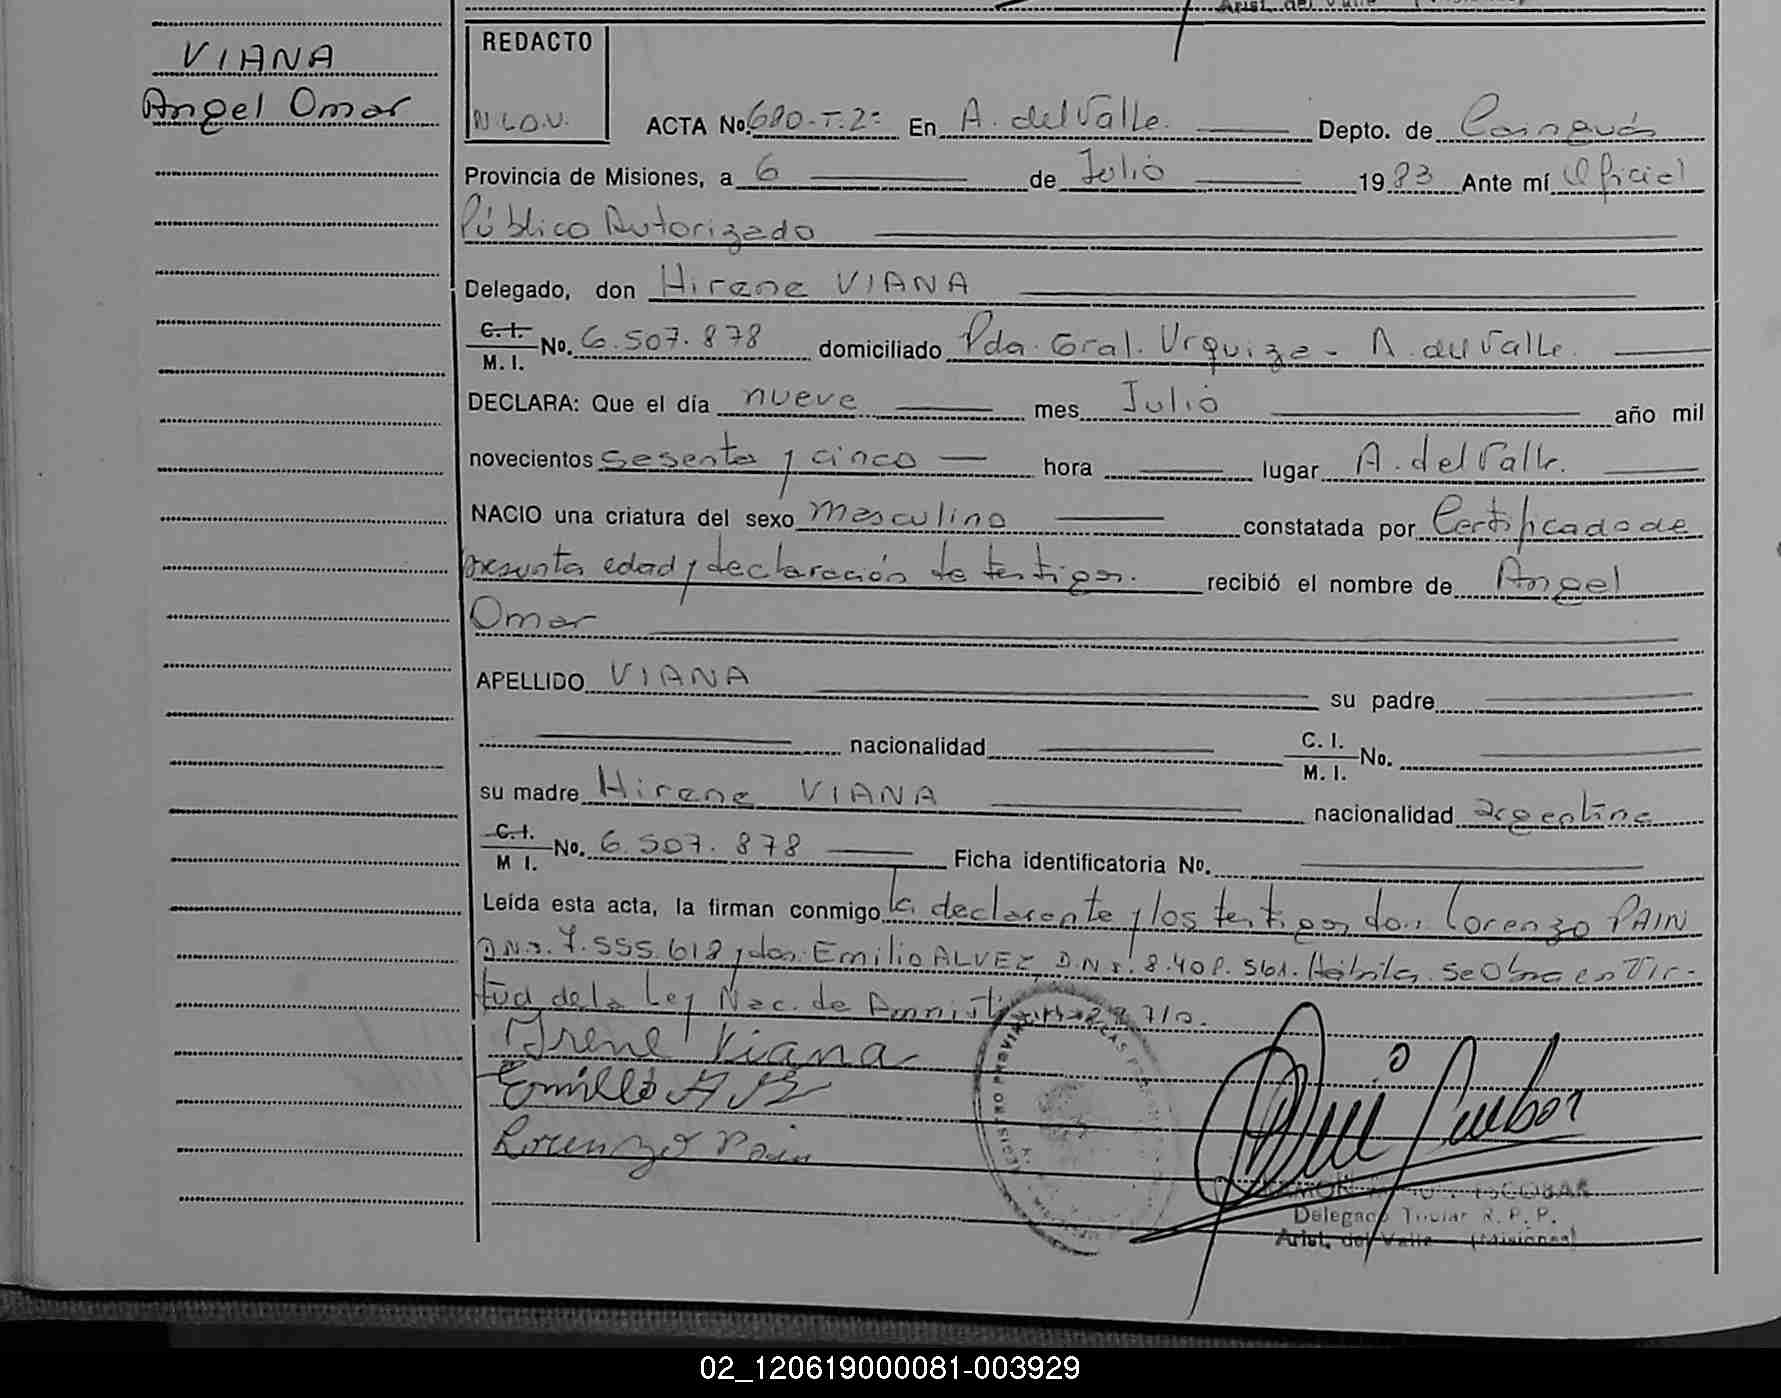 Arist. del Valle (Misiones)
VIANA
Angel Omar
REDACTO
N.L.O.V.
ACTA No. 680-T.2º En A. del Valle. Depto. de Cainguás
Provincia de Misiones, a 6 de Julio 1983 Ante mí Oficial
Público Autorizado
Delegado, don Hirene VIANA
C. I. / M. I. No. 6.507.878 domiciliado Pda. Gral. Urquiza - A. del Valle.
DECLARA: Que el día nueve mes Julio año mil
novecientos sesenta y cinco hora lugar A. del Valle.
NACIO una criatura del sexo masculino constatada por Certificado de
presunta edad y declaración de testigos. recibió el nombre de Angel
Omar
APELLIDO VIANA su padre
nacionalidad C. I. / M. I. No.
su madre Hirene VIANA nacionalidad argentina
C. I. / M I. No. 6.507.878 Ficha identificatoria No.
Leída esta acta, la firman conmigo la declarante y los testigos don Lorenzo PAIN
D.N.I. 7.555.618 y don Emilio ALVEZ D.N.I. 8.408.561. Hábiles. Se Obra en Vir-
tud de la Ley Nac. de Amnistía Nº 22.710.
Irene Viana
Emilio
Lorenzo Pain
ESCOBAR
Delegado Titular R. P. P.
Arist. del Valle (Misiones)
02_120619000081-003929